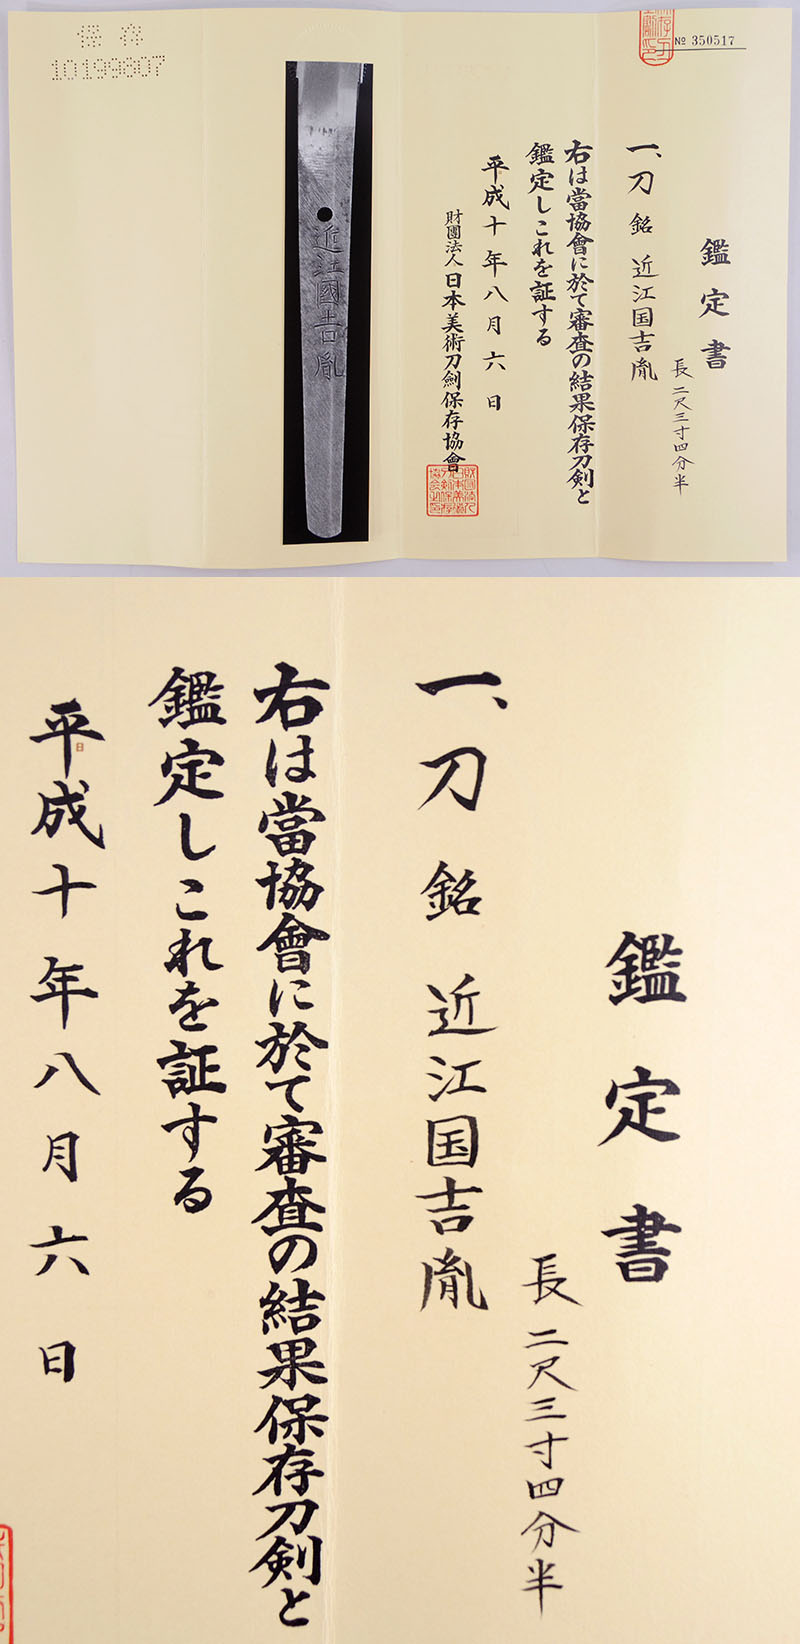 保存
10199807
№ 350517
鑑定書
長二尺三寸四分半
一、刀 銘 近江国吉胤
右は當協會に於て審査の結果保存刀剣と
鑑定しこれを証する
平成十年八月六日
財團法人日本美術刀劍保存協會
近江國吉胤
鑑定書
長二尺三寸四分半
一、刀 銘 近江国吉胤
右は當協會に於て審査の結果保存刀剣と
鑑定しこれを証する
平成十年八月六日